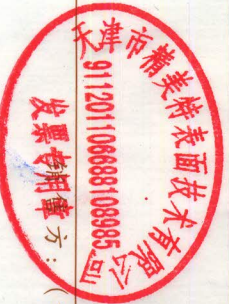 天津市精美特表面技术有限公司
911201106688108985
发票专用章
销售方：（